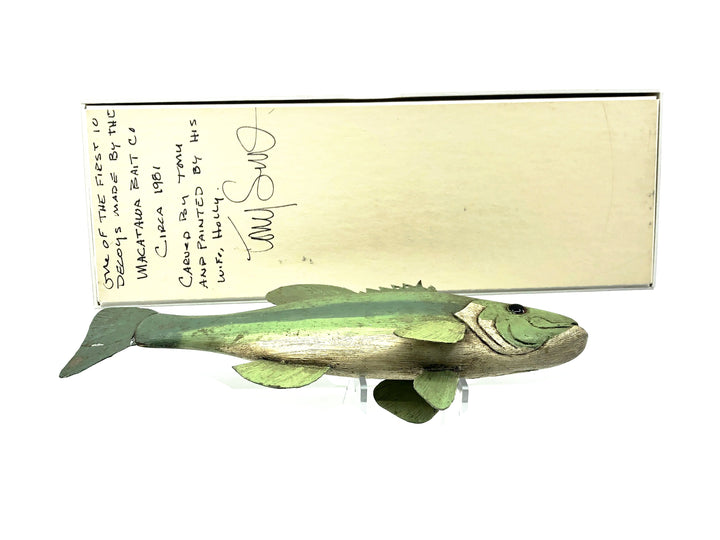 ONE OF THE FIRST 10
DECOYS MADE BY THE
MACATAWA BAIT CO
CIRCA 1981
CARVED BY TONY
AND PAINTED BY HIS
WIFE, HOLLY.
Tony